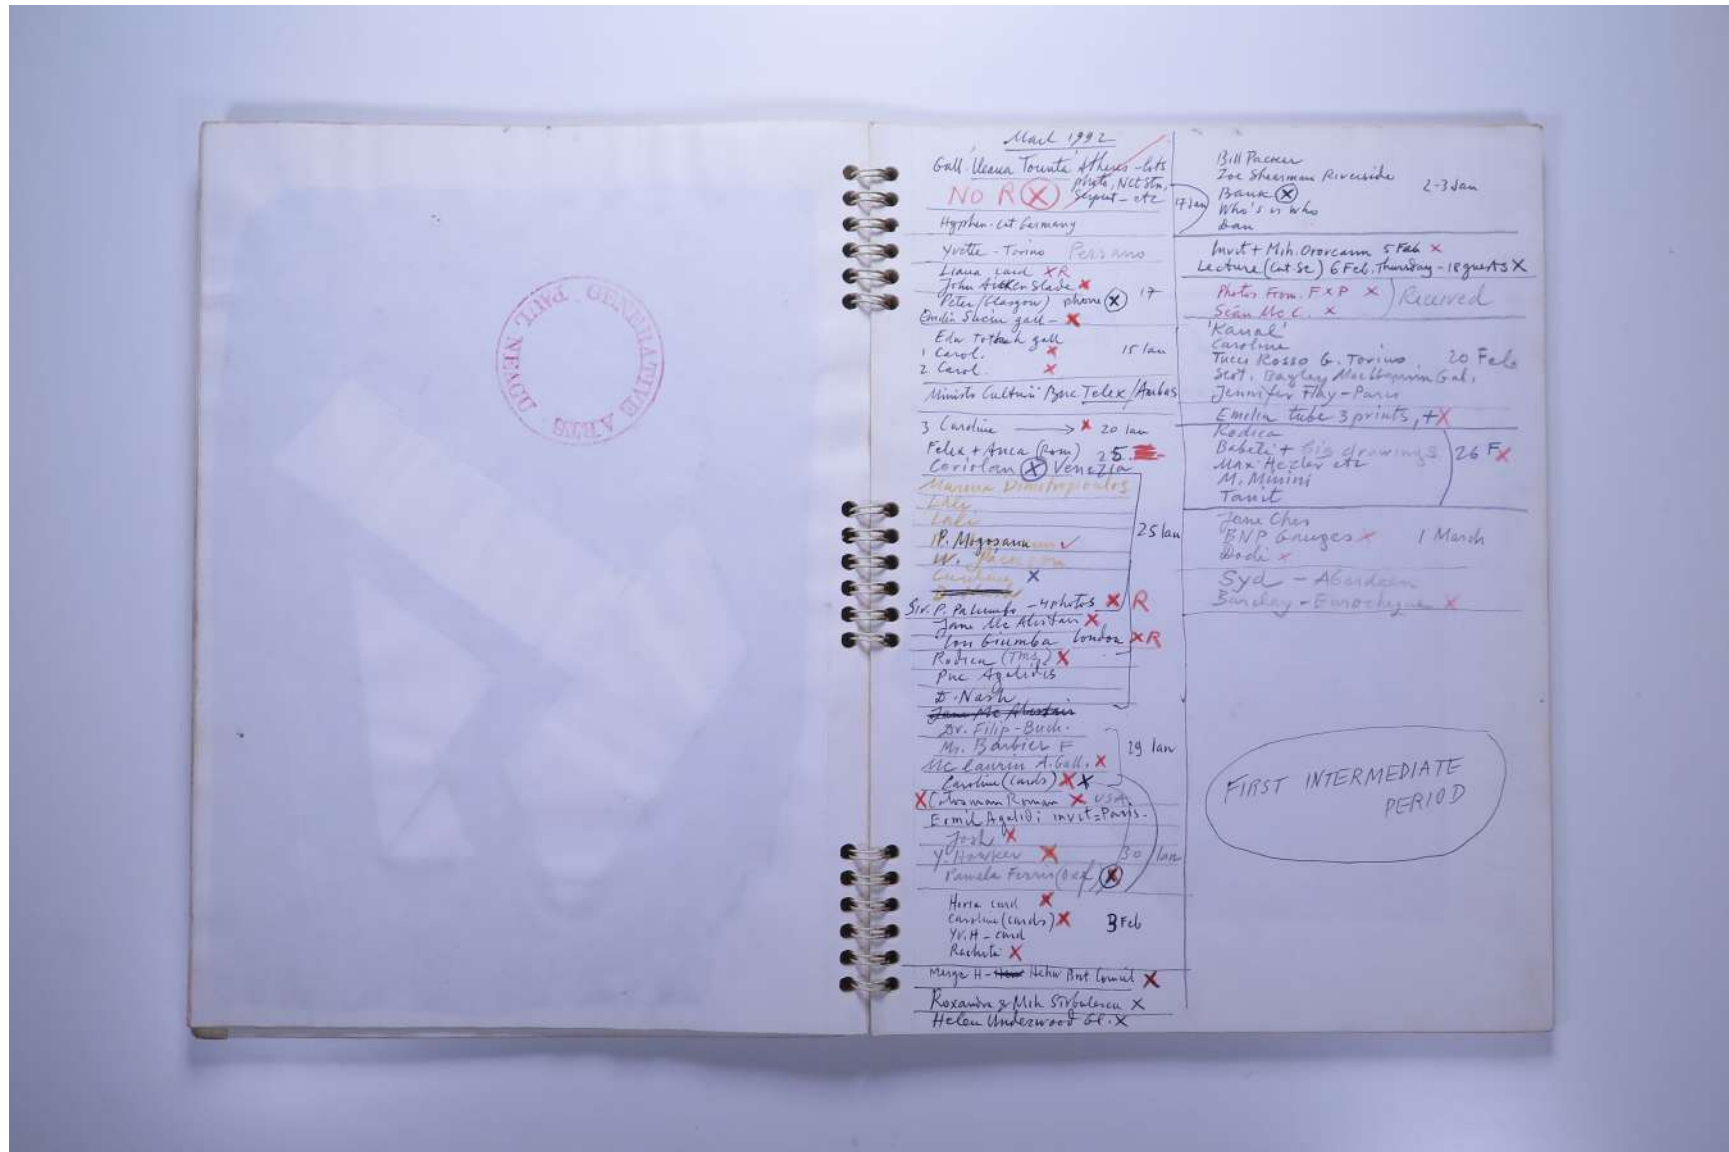 PAUL NEAGU GENERATIVE ARTS
Mail 1992
Gall. Ileana Tounta Athens - lots
photo, Nct Stn,
NO R X Serpent - etc
17 Jan
Hyphen - cat Germany
Yvette - Torino Persano
Liana card X R
John Aiken Slade X
Peter (Glasgow) phone X 17
Emilia Suciu gall - X
Edw Totah gall
1 Carol. X 15 Ian
2 Carol. X
Ministr Culturii Buc Telex/Ambas
3 Caroline → X 20 Ian
Felix + Anca (Rom) 25.
Coriolan X Venezia
Marina Dimitropoulos
Lali
25 Ian
P. Mogosanu
W. Jackson
X
Sir. P. Palumbo - 4 photos X R
Jane Mc Alistair X
Ion Giumba London X R
Rodica (Tms) X
Puc Agalidis
D. Nash
Jane Mc Alistair
Dr. Filip - Buch.
Mr. Barbier F 29 Ian
Mc Laurin A. Gall. X
Caroline (cards) X X
X Cotosman Roman X USA
Ermil Agalidi invit = Paris.
Josh X
Y. Hawker X 30 Ian
Pamela Ferris X
Horia card X
Caroline (cards) X 3 Feb
Yv. H - card
Rachita X
H - Brit Council X
Roxandra & Mih Sirbulescu X
Helen Underwood Gl. X
Bill Packer
Zoe Shearman Riverside 2-3 Jan
Bank X
Who's is who
Dan
Invit + Mih. Oroveanu 5 Feb X
Lecture (Cat Sc) 6 Feb. Thursday - 18 guests X
Photos From. F X P X Received
Seán Mc C. X
'Kanal'
Caroline
Tucci Rosso G. Torino 20 Feb
Scot. Bagley MacLaurin Gal.
Jennifer Flay - Paris
Emelia tube 3 prints, + X
Rodica
Babeti + big drawings 26 F X
Max Hezler etc
M. Minini
Tanit
Jane Ches
BNP Gauges X 1 March
Dodi X
Syd - Aberdeen
Barclay - Eurocheque X
FIRST INTERMEDIATE
PERIOD